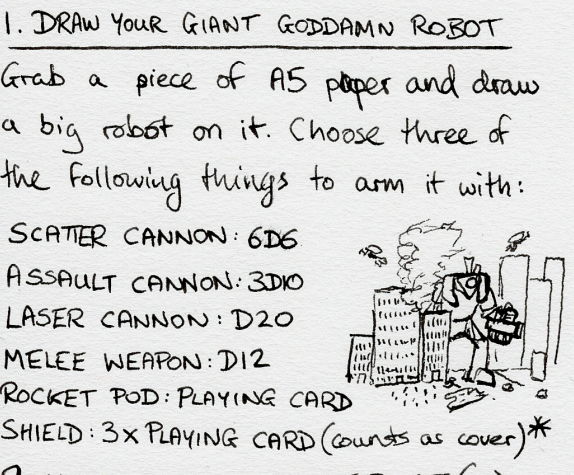 1. DRAW YOUR GIANT GODDAMN ROBOT
Grab a piece of A5 paper and draw
a big robot on it. Choose three of
the following things to arm it with:
SCATTER CANNON: 6D6
ASSAULT CANNON: 3D10
LASER CANNON: D20
MELEE WEAPON: D12
ROCKET POD: PLAYING CARD
SHIELD: 3x PLAYING CARD (counts as cover)*